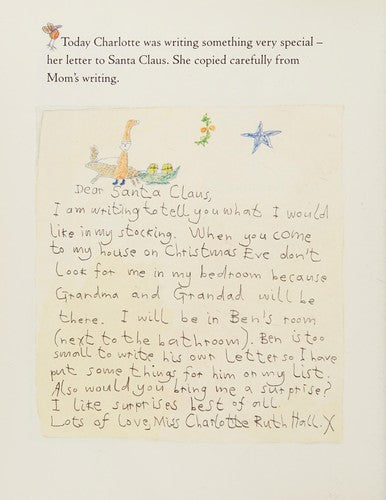 Today Charlotte was writing something very special –
her letter to Santa Claus. She copied carefully from
Mom's writing.
Dear Santa Claus,
I am writing to tell you what I would
like in my stocking. When you come
to my house on Christmas Eve don't
look for me in my bedroom because
Grandma and Grandad will be
there. I will be in Ben's room
(next to the bathroom). Ben is too
small to write his own letter so I have
put some things for him on my list.
Also would you bring me a surprise?
I like surprises best of all.
Lots of love, Miss Charlotte Ruth Hall. X